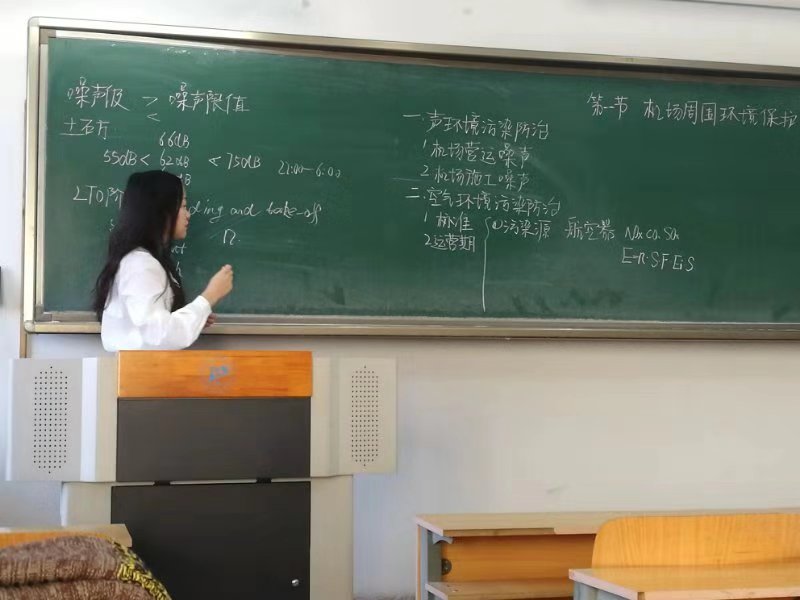 噪声级 > < 噪声限值
土石方
66dB
55dB < 62dB < 75dB 22:00-6:00
dB
LTO阶 ding and take-off
n
第一节 机场周围环境保护
一.声环境污染防治
1 机场营运噪声
2 机场施工噪声
二.空气环境污染防治
1 标准
2 运营期
①污染源 航空器 NOx.CO.SOx
E=n·S·F